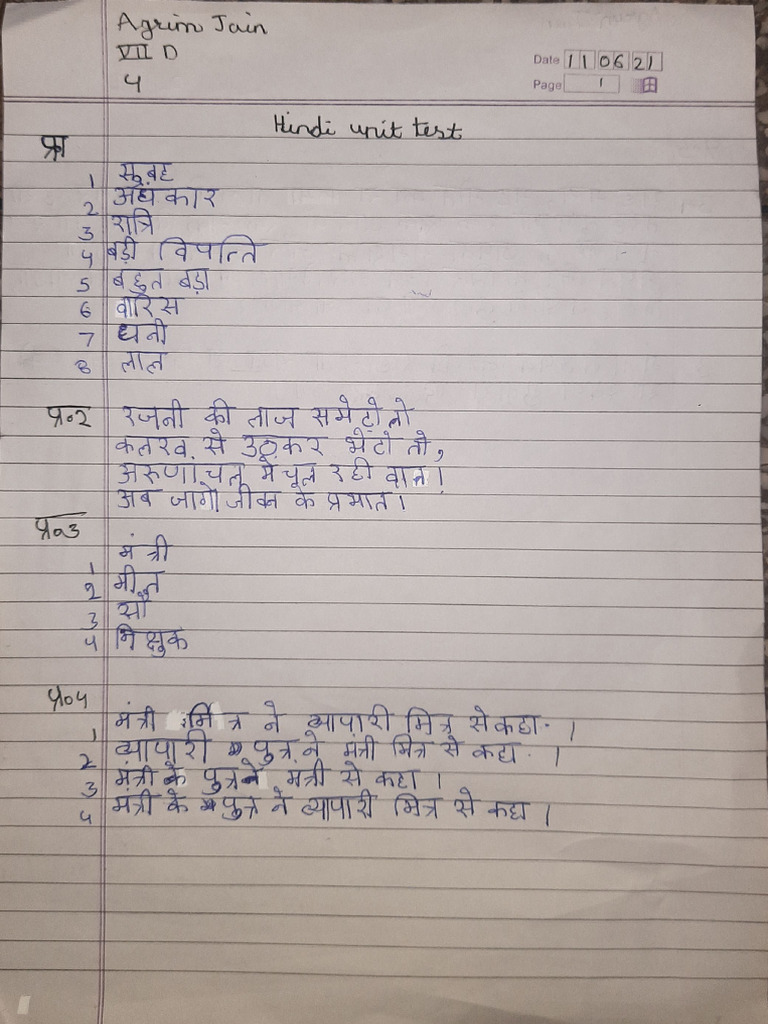 Agrim Jain
VII D
4
Date 11 06 21
Page 1
Hindi unit test
प्र1
1 सूबह
2 अंधकार
3 रात्रि
4 बड़ी विपत्ति
5 बहुत बड़ा
6 वारिस
7 धनी
8 लाल
प्र॰2 रजनी की लाज समेटो तो
कलरव से उठकर भेंटो तो,
अरुणाचल में चल रही वात।
अब जागो जीवन के प्रभात।
प्र॰3
1 मंत्री
2 मीत
3 सौ
4 भिक्षुक
प्र॰4
1 मंत्री मित्र ने व्यापारी मित्र से कहा।
2 व्यापारी पुत्र ने मंत्री मित्र से कहा।
3 मंत्री के पुत्र ने मंत्री से कहा।
4 मंत्री के पुत्र ने व्यापारी मित्र से कहा।